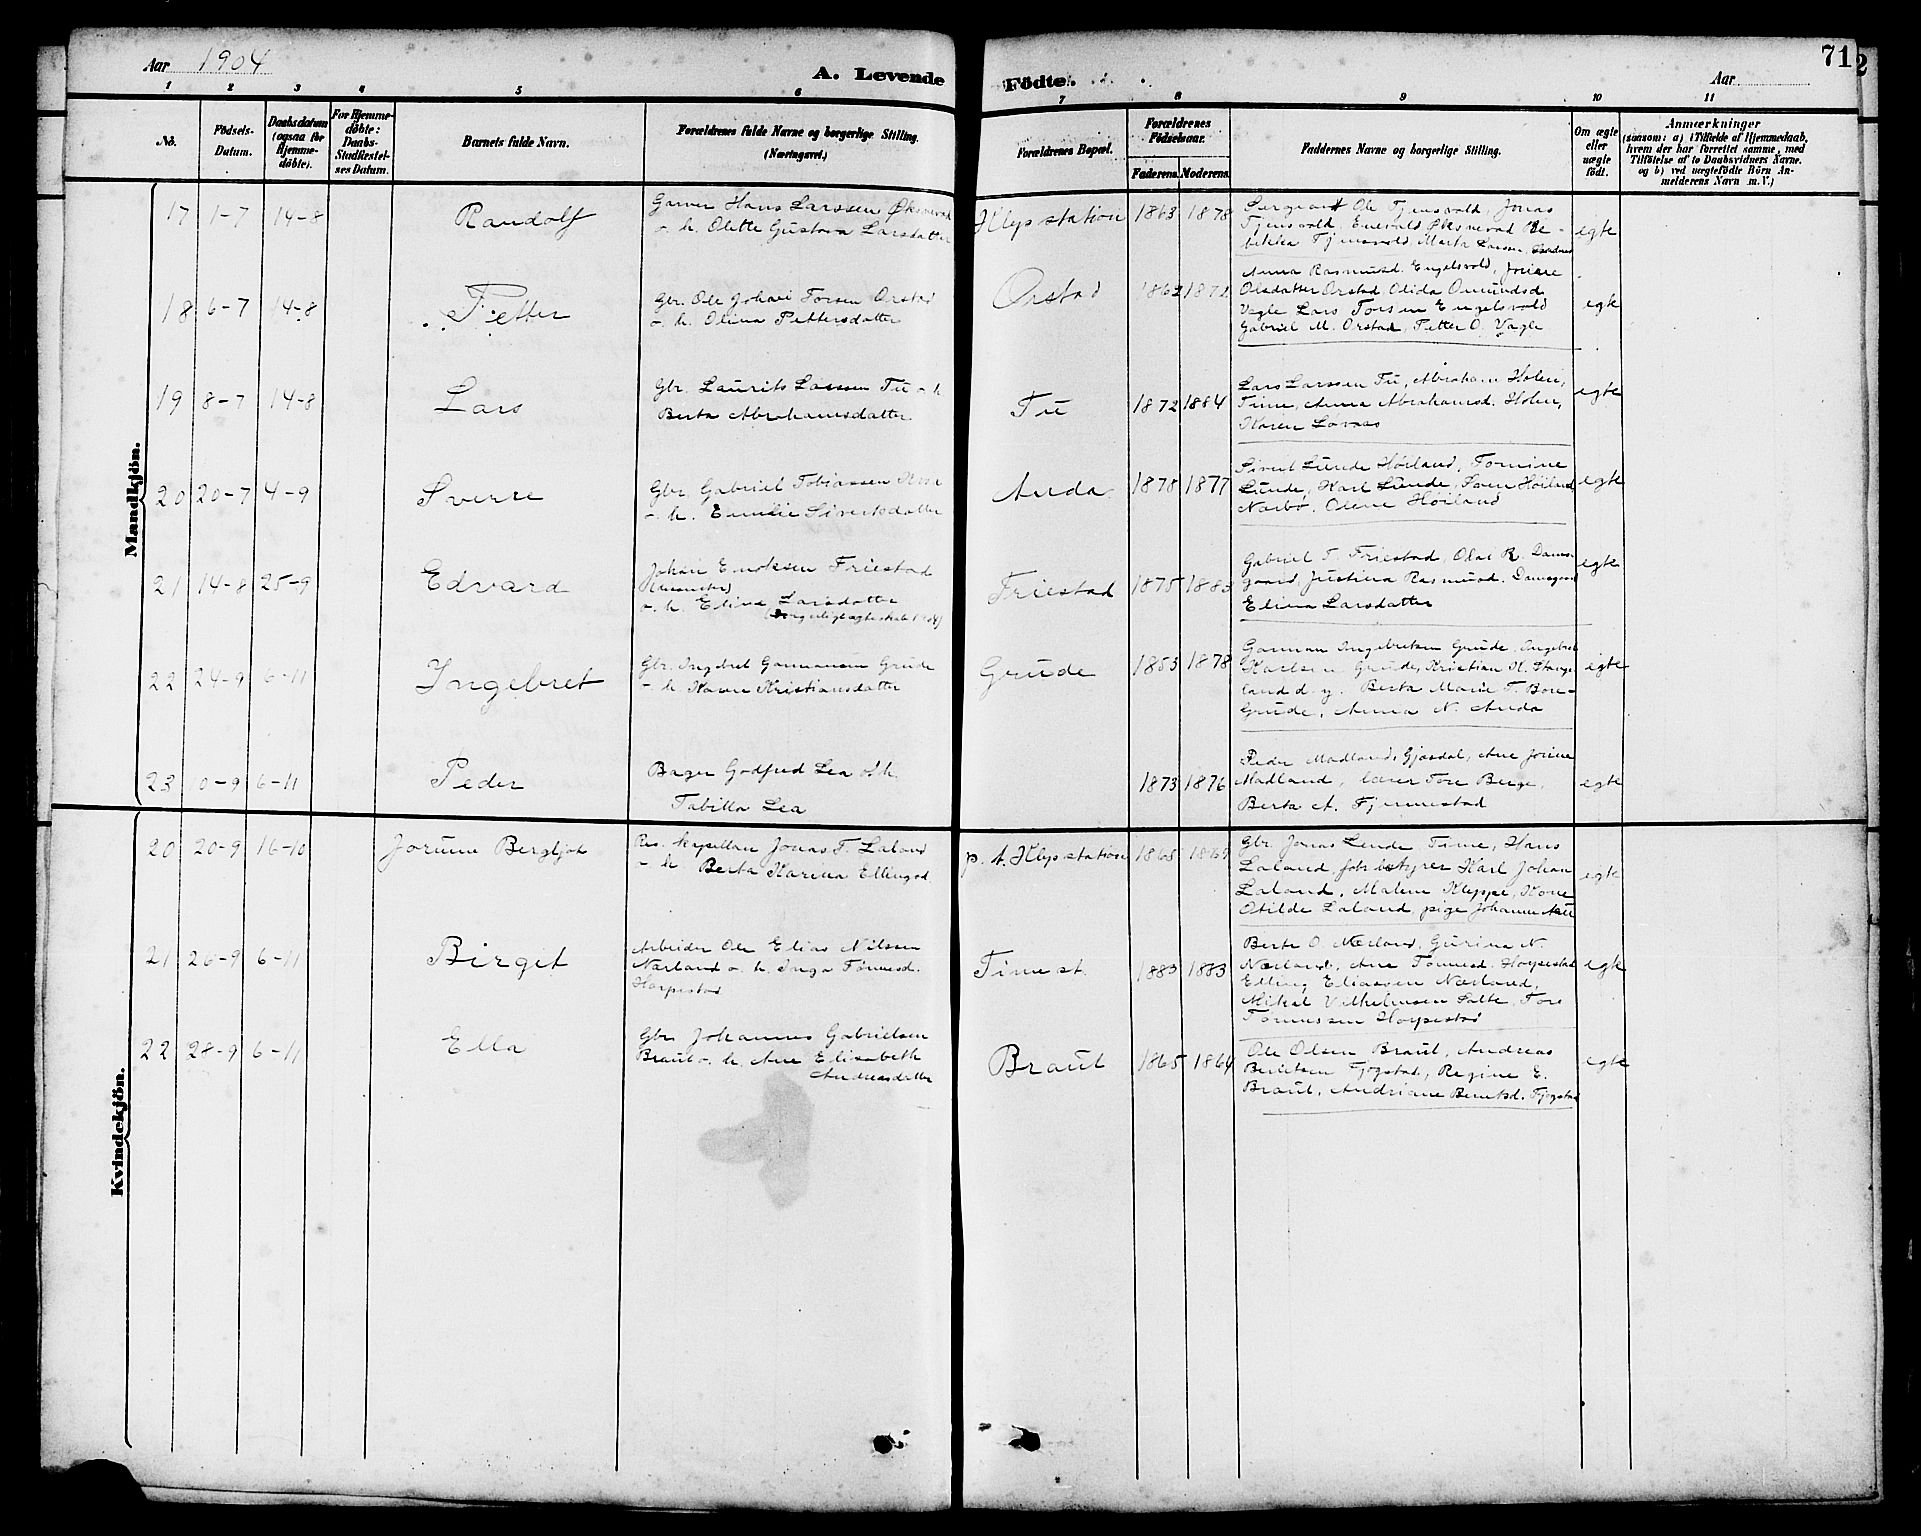 Aar 1904
A. Levende
Födte.
Aar
71
2
1 2 3 4 5 6 7 8 9 10 11
No.
Födsels-
Datum.
Daabsdatum
(ogsaa for
Hjemme-
döbte).
For Hjemme-
döbte:
Daabs-
Stadfæstel-
ses Datum.
Barnets fulde Navn.
Forældrenes fulde Navne og borgerlige Stilling.
(Næringsvei.)
Forældrenes Bopæl.
Forældrenes
Födselsaar.
Faderens. Moderens.
Faddernes Navne og borgerlige Stilling.
Om ægte
eller
uægte
født.
Anmærkninger
(saasom: a) i Tilfælde af Hjemmedaab,
hvem der har forrettet samme, med
Tilföielse af to Daabsvidners Navne.
og b) ved uægtefödte Börn An-
melderens Navn m. V.)
Mandkjön.
17 1-7 14-8 Randolf
Garver Hans Larssen Øksnevad
o. h. Olette Gustava Larsdatter
Klepstation 1863 1878
Sergeant Ole Tjensvold, Jonas
Tjensvold, Enevald Øksnevad Re-
bekka Tjensvold, Marta Larsen
egte
18 6-7 14-8 Petter
Gbr. Ole Johan Torsen Orstad
o. h. Olina Pettersdatter
Orstad 1862 1872
Anna Rasmusd. Engelsvold, Jorine
Olsdatter Orstad Olida Omundsd
Vagle Lars Torsen Engelsvold
Gabriel M. Orstad, Petter O. Vagle
egte
19 8-7 14-8 Lars
Gbr. Laurits Larssen Tu o. h
Berta Abrahamsdatter
Tu 1872 1884
Lars Larssen Tu, Abraham Holen,
Time, Anna Abrahamsd. Holen,
Karen Lovaas
egte
20 20-7 4-9 Sverre
Gbr. Gabriel Tobiassen
o. h. Emilie Sivertsdatter
Anda 1878 1877
Sivert Lunde Høiland, Tomine
Lunde, Karl Lunde, Soren Høiland,
Nærbø, Olene Høiland
egte
21 14-8 25-9 Edvard
Johan Enoksen Friestad
o. h. Elina Larsdatter
Friestad 1875 1883
Gabriel T. Friestad, Olai R. Dams-
gaard, Justina Rasmusd. Damsgaard
Elina Larsdatter
egte
22 24-9 6-11 Ingebret
Gbr. Ingebret Garmansen Grude
o. h. Karen Kristiansdatter
Grude 1853 1878
Garman Ingebretsen Grude, Ingebret
Karlsen Grude, Kristian H. Stange-
land d. y. Berta Marie T. Bore-
Grude, Anna N. Anda
egte
23 0-9 6-11 Peder
Bager Godfred Lea o. h.
Tabitta Lea
1873 1876
Peder Madland, Gjesdal, Ane Jorine
Madland, lærer Tore Berge,
Berta A. Fjermestad
egte
Kvindekjön.
20 20-9 16-10 Jorunn Bergljot
Res. kapellan Jonas F. Laland
o. h Berta Karina Ellingsd.
p. t. Klepstation 1865 1869
Gbr. Jonas Lende Time, Hans
Laland, fabr bestyrer Karl Johan
Laland, Malene Kleppe, Kone
Otilde Laland, pige Johanne
egte
21 26-9 6-11 Birgit
Arbeider Ole Elias Nilssen
Nærland o. h. Inga Tønnesd.
Horpestad
Time st. 1883 1883
Berte O. Nærland, Gurina N.
Nærland, Ane Tønnesd. Horpestad
Elling Eliassen Nærland,
Mikal Vilhelmsen Salte, Tore
Tønnessen Horpestad
egte
22 28-9 6-11 Ella
Gbr Johannes Gabrielsen
Braut o. h. Ane Elisabeth
Andreasdatter
Braut 1865 1864
Ole Olsen Braut, Andreas
Berntsen Tjøgstad, Regine E.
Braut, Andriane Berntsd. Tjøgstad
egte